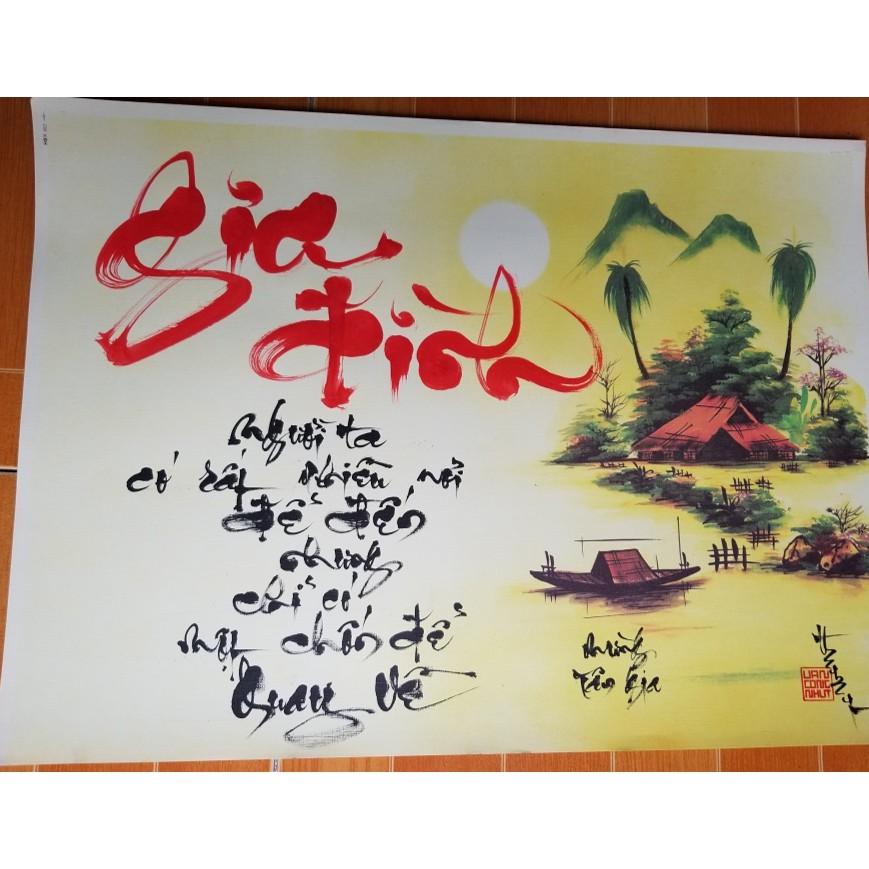 Gia
đình
Người ta
có rất nhiều nơi
để đến
nhưng
chỉ có
một chốn để
Quay Về
Mừng
Tân Gia
VAN
CONG
NHUT